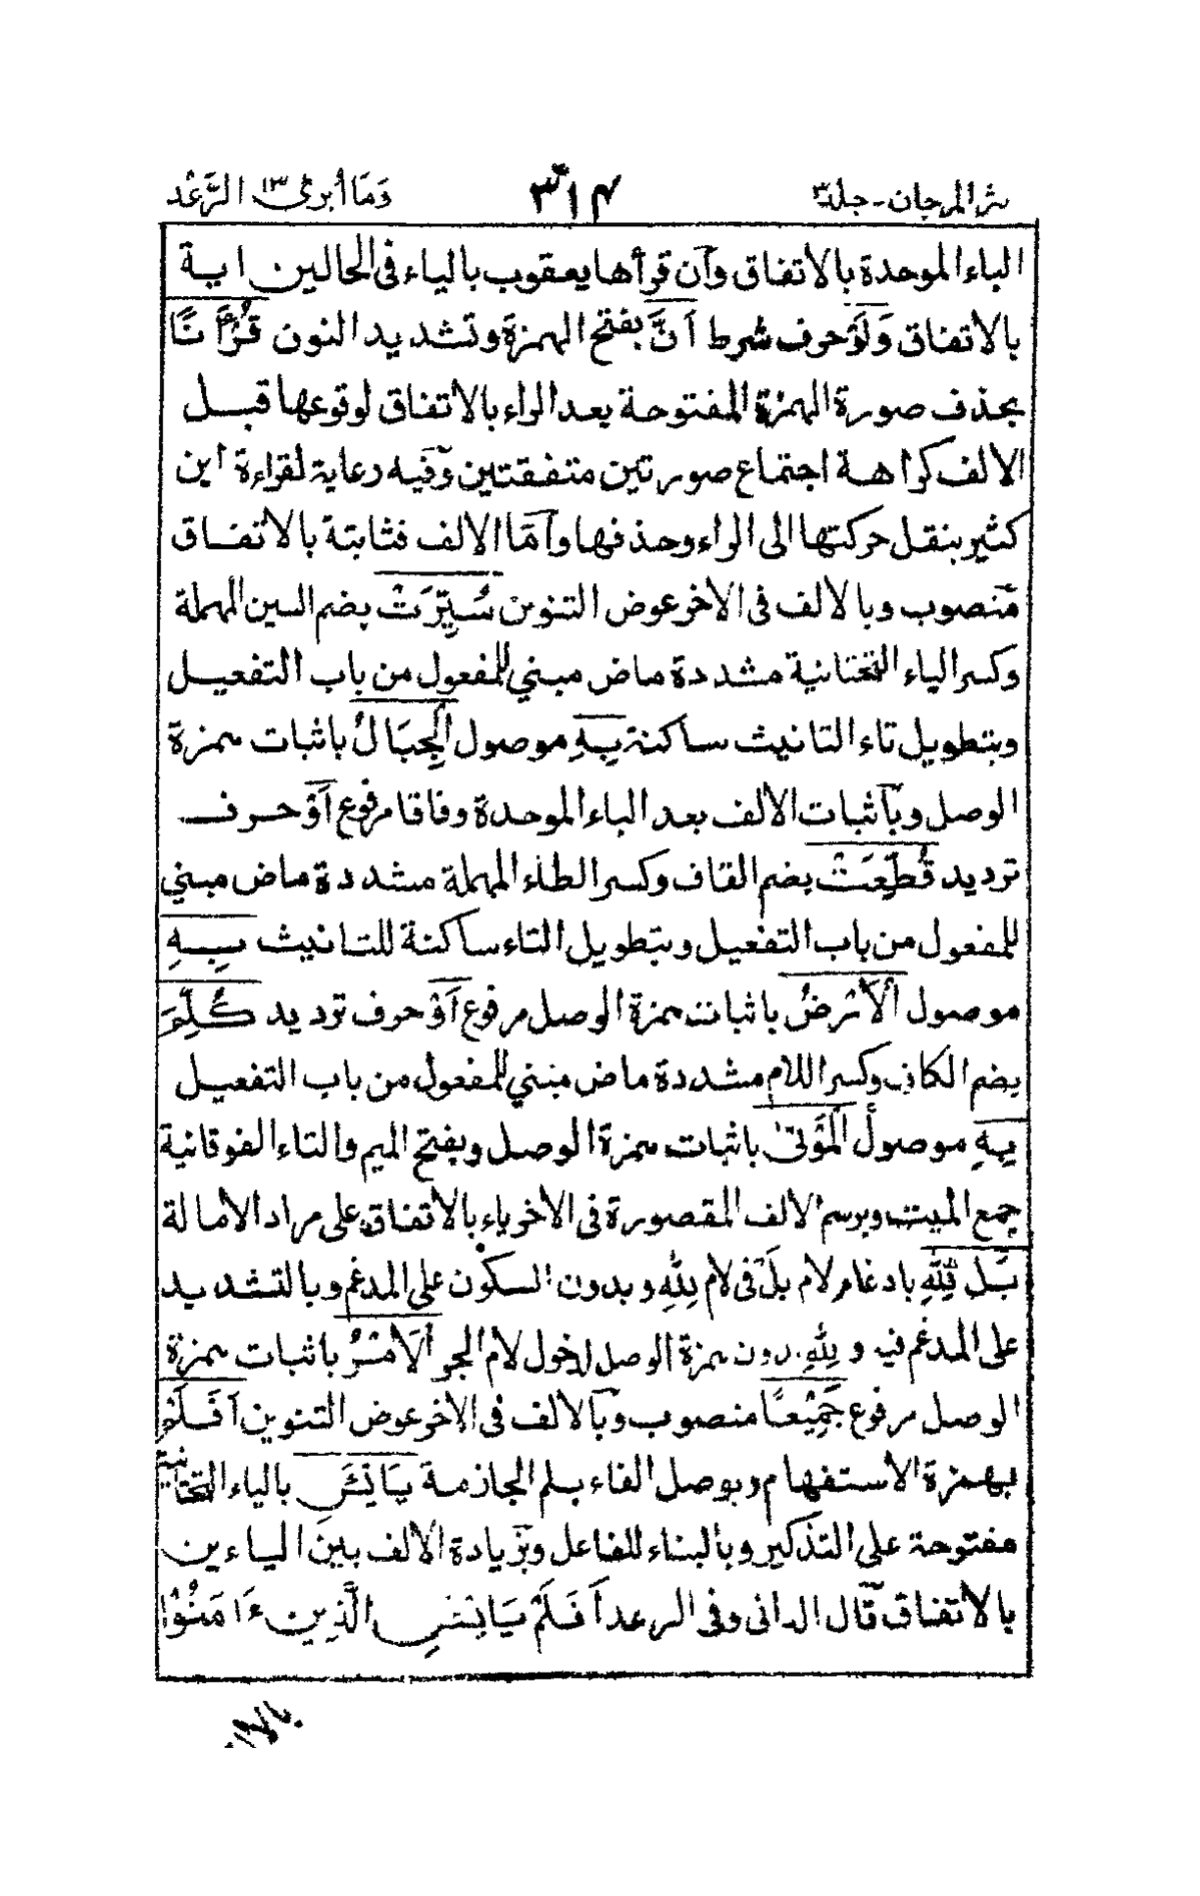 نثر المرجان - جلد ٣ ٣١٤ وَمَا أُبرئ ١٣ الرَّعْد
الباء الموحدة بالاتفاق وآن قرأها يعقوب بالياء فى الحالين اية
بالاتفاق وَلَوْ حرف شرط اَنَّ بفتح الهمزة وتشديد النون قُرْاٰنًا
بحذف صورة الهمزة المفتوحة بعد الراء بالاتفاق لوقوعها قبل
الالف كراهة اجتماع صورتين متفقتين وفيه رعاية لقراءة ابن
كثير بنقل حركتها الى الراء وحذفها وآمّا الالف فثابتة بالاتفاق
منصوب وبالالف فى الاخر عوض التنوين سُيِّرَتْ بضم السين المهملة
وكسر الياء التحتانية مشددة ماض مبني للمفعول من باب التفعيل
وبتطويل تاء التانيث ساكنة بِهِ موصول الْجِبَالُ باثبات همزة
الوصل وبآثبات الالف بعد الباء الموحدة وفاقا مرفوع اَوْ حرف
ترديد قُطِّعَتْ بضم القاف وكسر الطاء المهملة مشددة ماض مبني
للمفعول من باب التفعيل وبتطويل التاء ساكنة للتانيث بِهِ
موصول الْاَرْضُ باثبات همزة الوصل مرفوع اَوْ حرف ترديد كُلِّمَ
بضم الكاف وكسر اللام مشددة ماض مبني للمفعول من باب التفعيل
بِهِ موصول الْمَوْتىٰ باثبات همزة الوصل وبفتح الميم والتاء الفوقانية
جمع الميت وبرسم الالف المقصورة فى الاخر ياء بالاتفاق على مراد الامالة
بَل لِّلّٰهِ بادغام لام بل فى لام لِلّٰهِ وبدون السكون على المدغم وبالتشديد
على المدغم فيه و لِلّٰهِ بدون همزة الوصل لدخول لام الجر الْاَمْرُ باثبات همزة
الوصل مرفوع جَمِيْعًا منصوب وبآلالف فى الاخر عوض التنوين اَفَلَمْ
بهمزة الاستفهام وبوصل الفاء بلم الجازمة يَايْئَسِ بالياء التحتانية
مفتوحة على التذكير وبالبناء للفاعل وبزيادة الالف بين الياءين
بالاتفاق قال الدانى وفى الرعد اَفَلَمْ يَايْئَسِ الَّذِينَ ءَامَنُوْا
بالالف